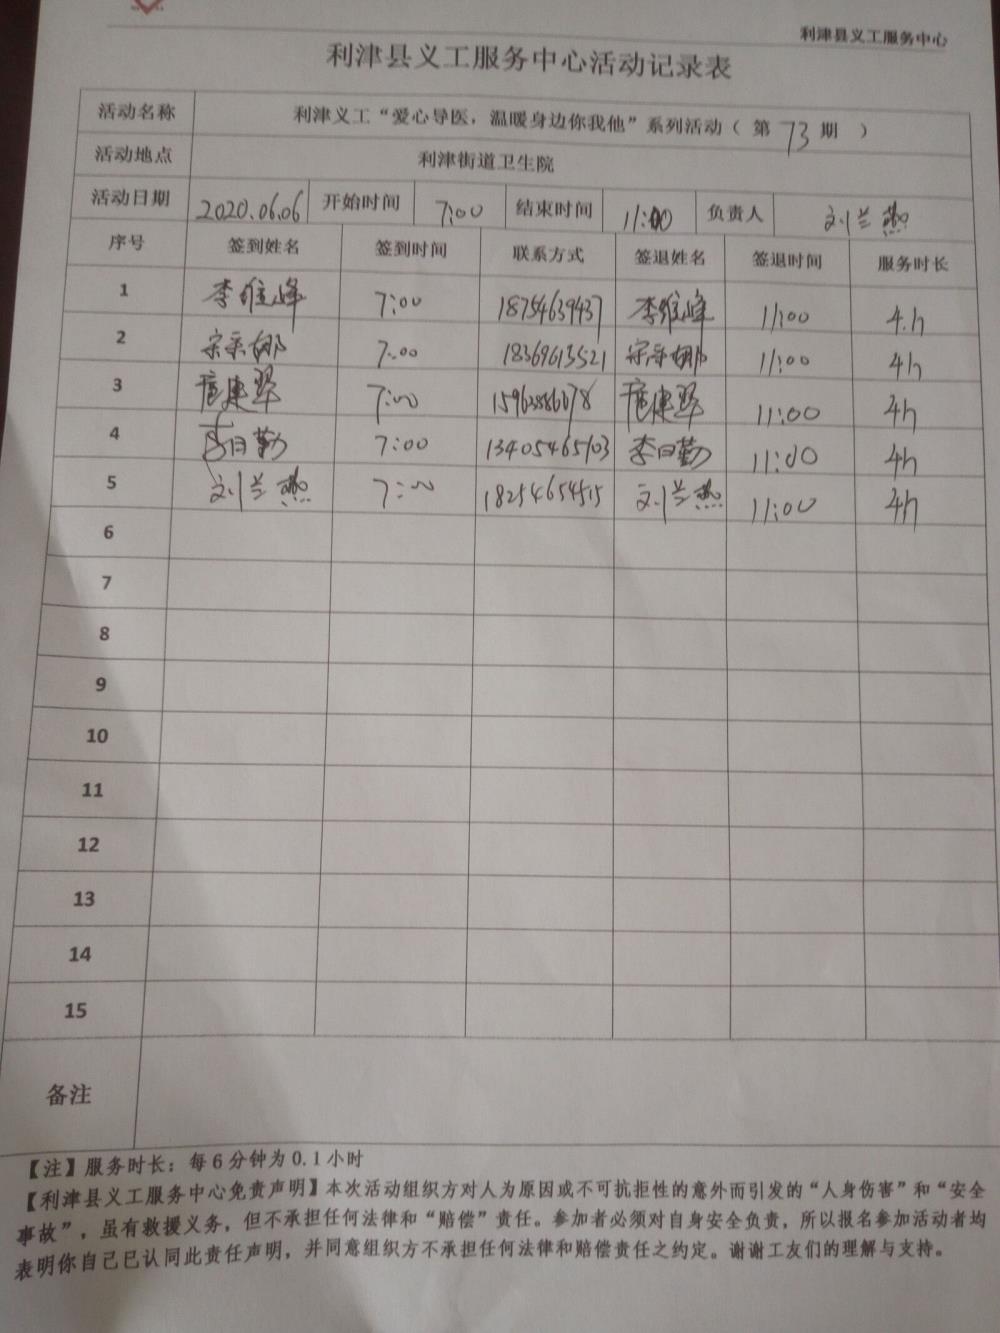 利津县义工服务中心
利津县义工服务中心活动记录表
活动名称 利津义工“爱心导医，温暖身边你我他”系列活动（ 第 73 期 ）
活动地点 利津街道卫生院
活动日期 2020.06.06 开始时间 7:00 结束时间 11:00 负责人 刘兰燕
序号 签到姓名 签到时间 联系方式 签退姓名 签退时间 服务时长
1 李维峰 7:00 18754639437 李维峰 11:00 4.h
2 7:00 18369613521 11:00 4h
3 7:00 11:00 4h
4 李日勤 7:00 13405465103 李日勤 11:00 4h
5 刘兰燕 7:00 18254654515 刘兰燕 11:00 4h
6
7
8
9
10
11
12
13
14
15
备注
【注】服务时长：每6分钟为0.1小时
【利津县义工服务中心免责声明】本次活动组织方对人为原因或不可抗拒性的意外而引发的“人身伤害”和“安全
事故”，虽有救援义务，但不承担任何法律和“赔偿”责任。参加者必须对自身安全负责，所以报名参加活动者均
表明你自己已认同此责任声明，并同意组织方不承担任何法律和赔偿责任之约定。谢谢工友们的理解与支持。